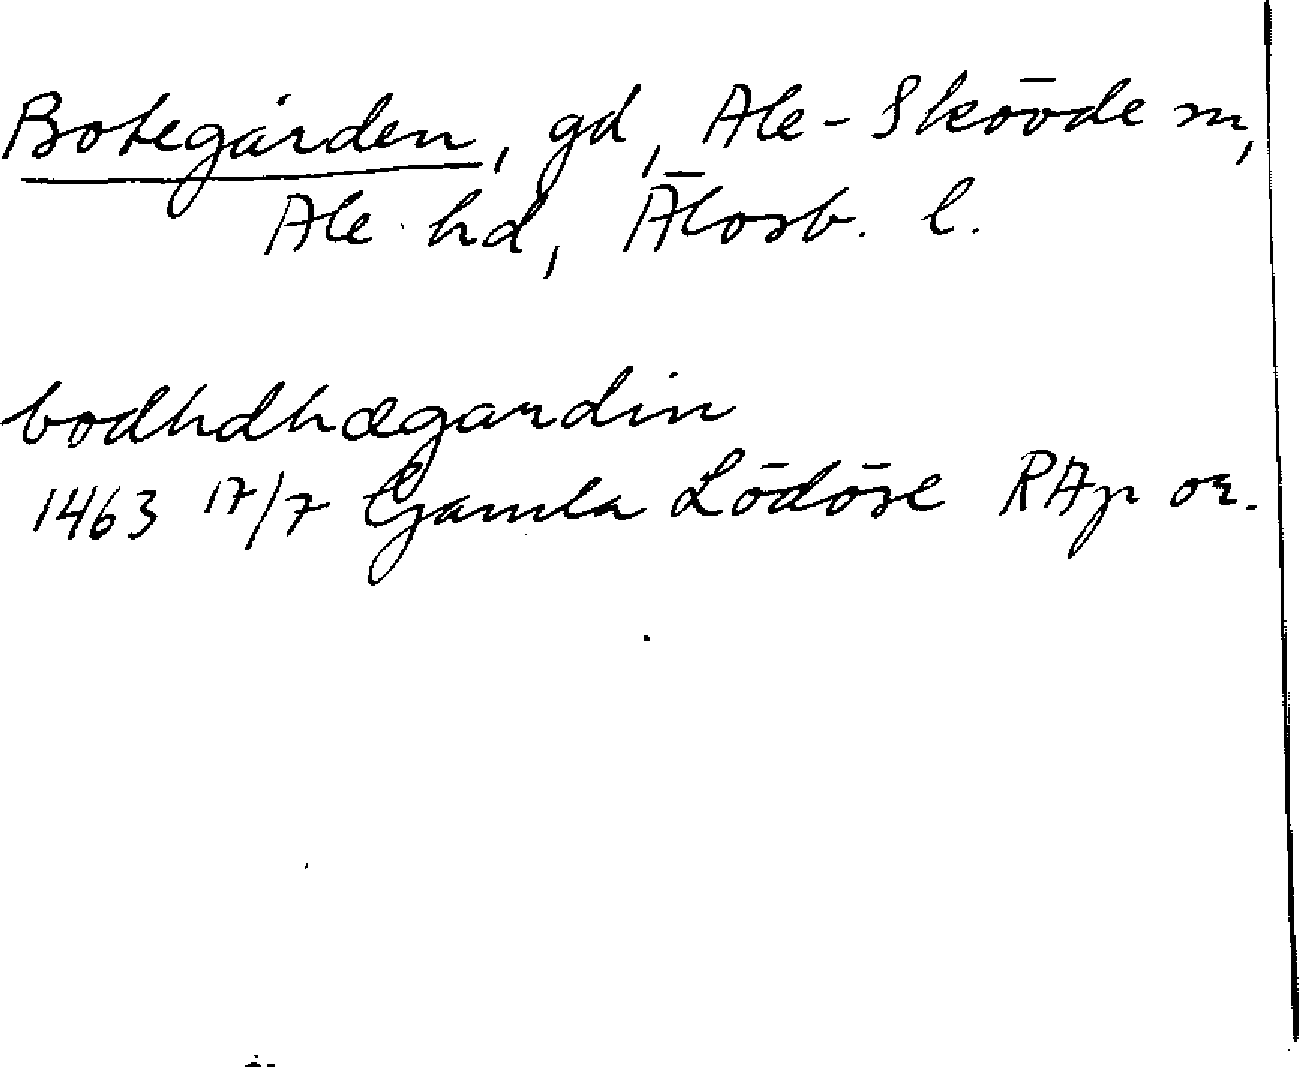 Botegården, gd, Ale-Skövde sn,
Ale hd, Älvsb. l.
bodhdhægardin
1463 17/7 Gamla Lödöse RAp or.